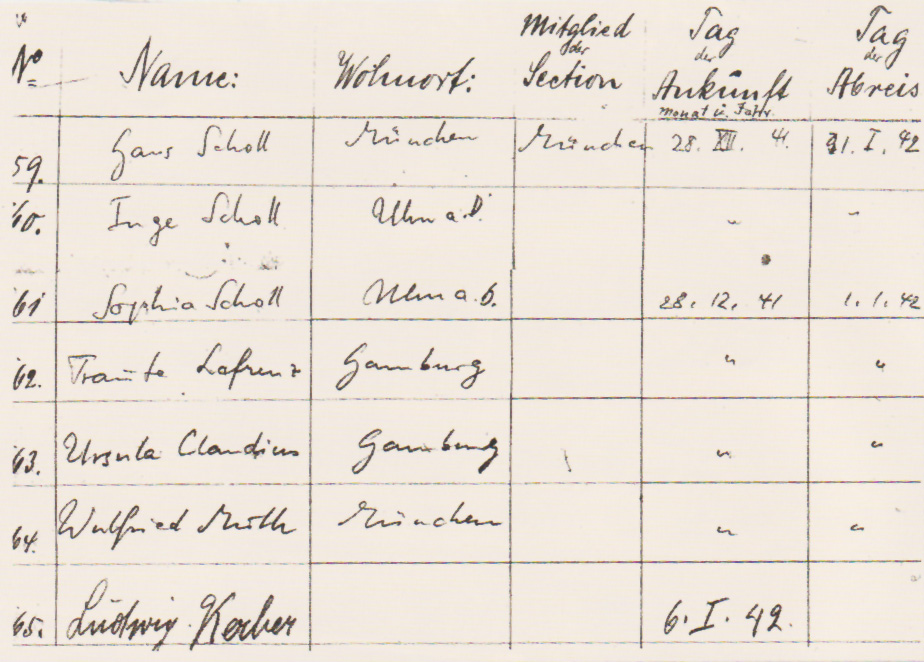 No Name: Wohnort: Mitglied der Section Tag der Ankunft Monat u. Jahr. Tag der Abreis
59. Hans Scholl München München 28. XII. 41. 31. I. 42
60. Inge Scholl Ulm a. D. " "
61 Sophia Scholl Ulm a. D. 28. 12. 41 1. 1. 42
62. Traute Lafrenz Hamburg " "
63. Ursula Claudius Hamburg " "
64. Wulfried Muth München " "
65. Ludwig Kerber 6. I. 42.